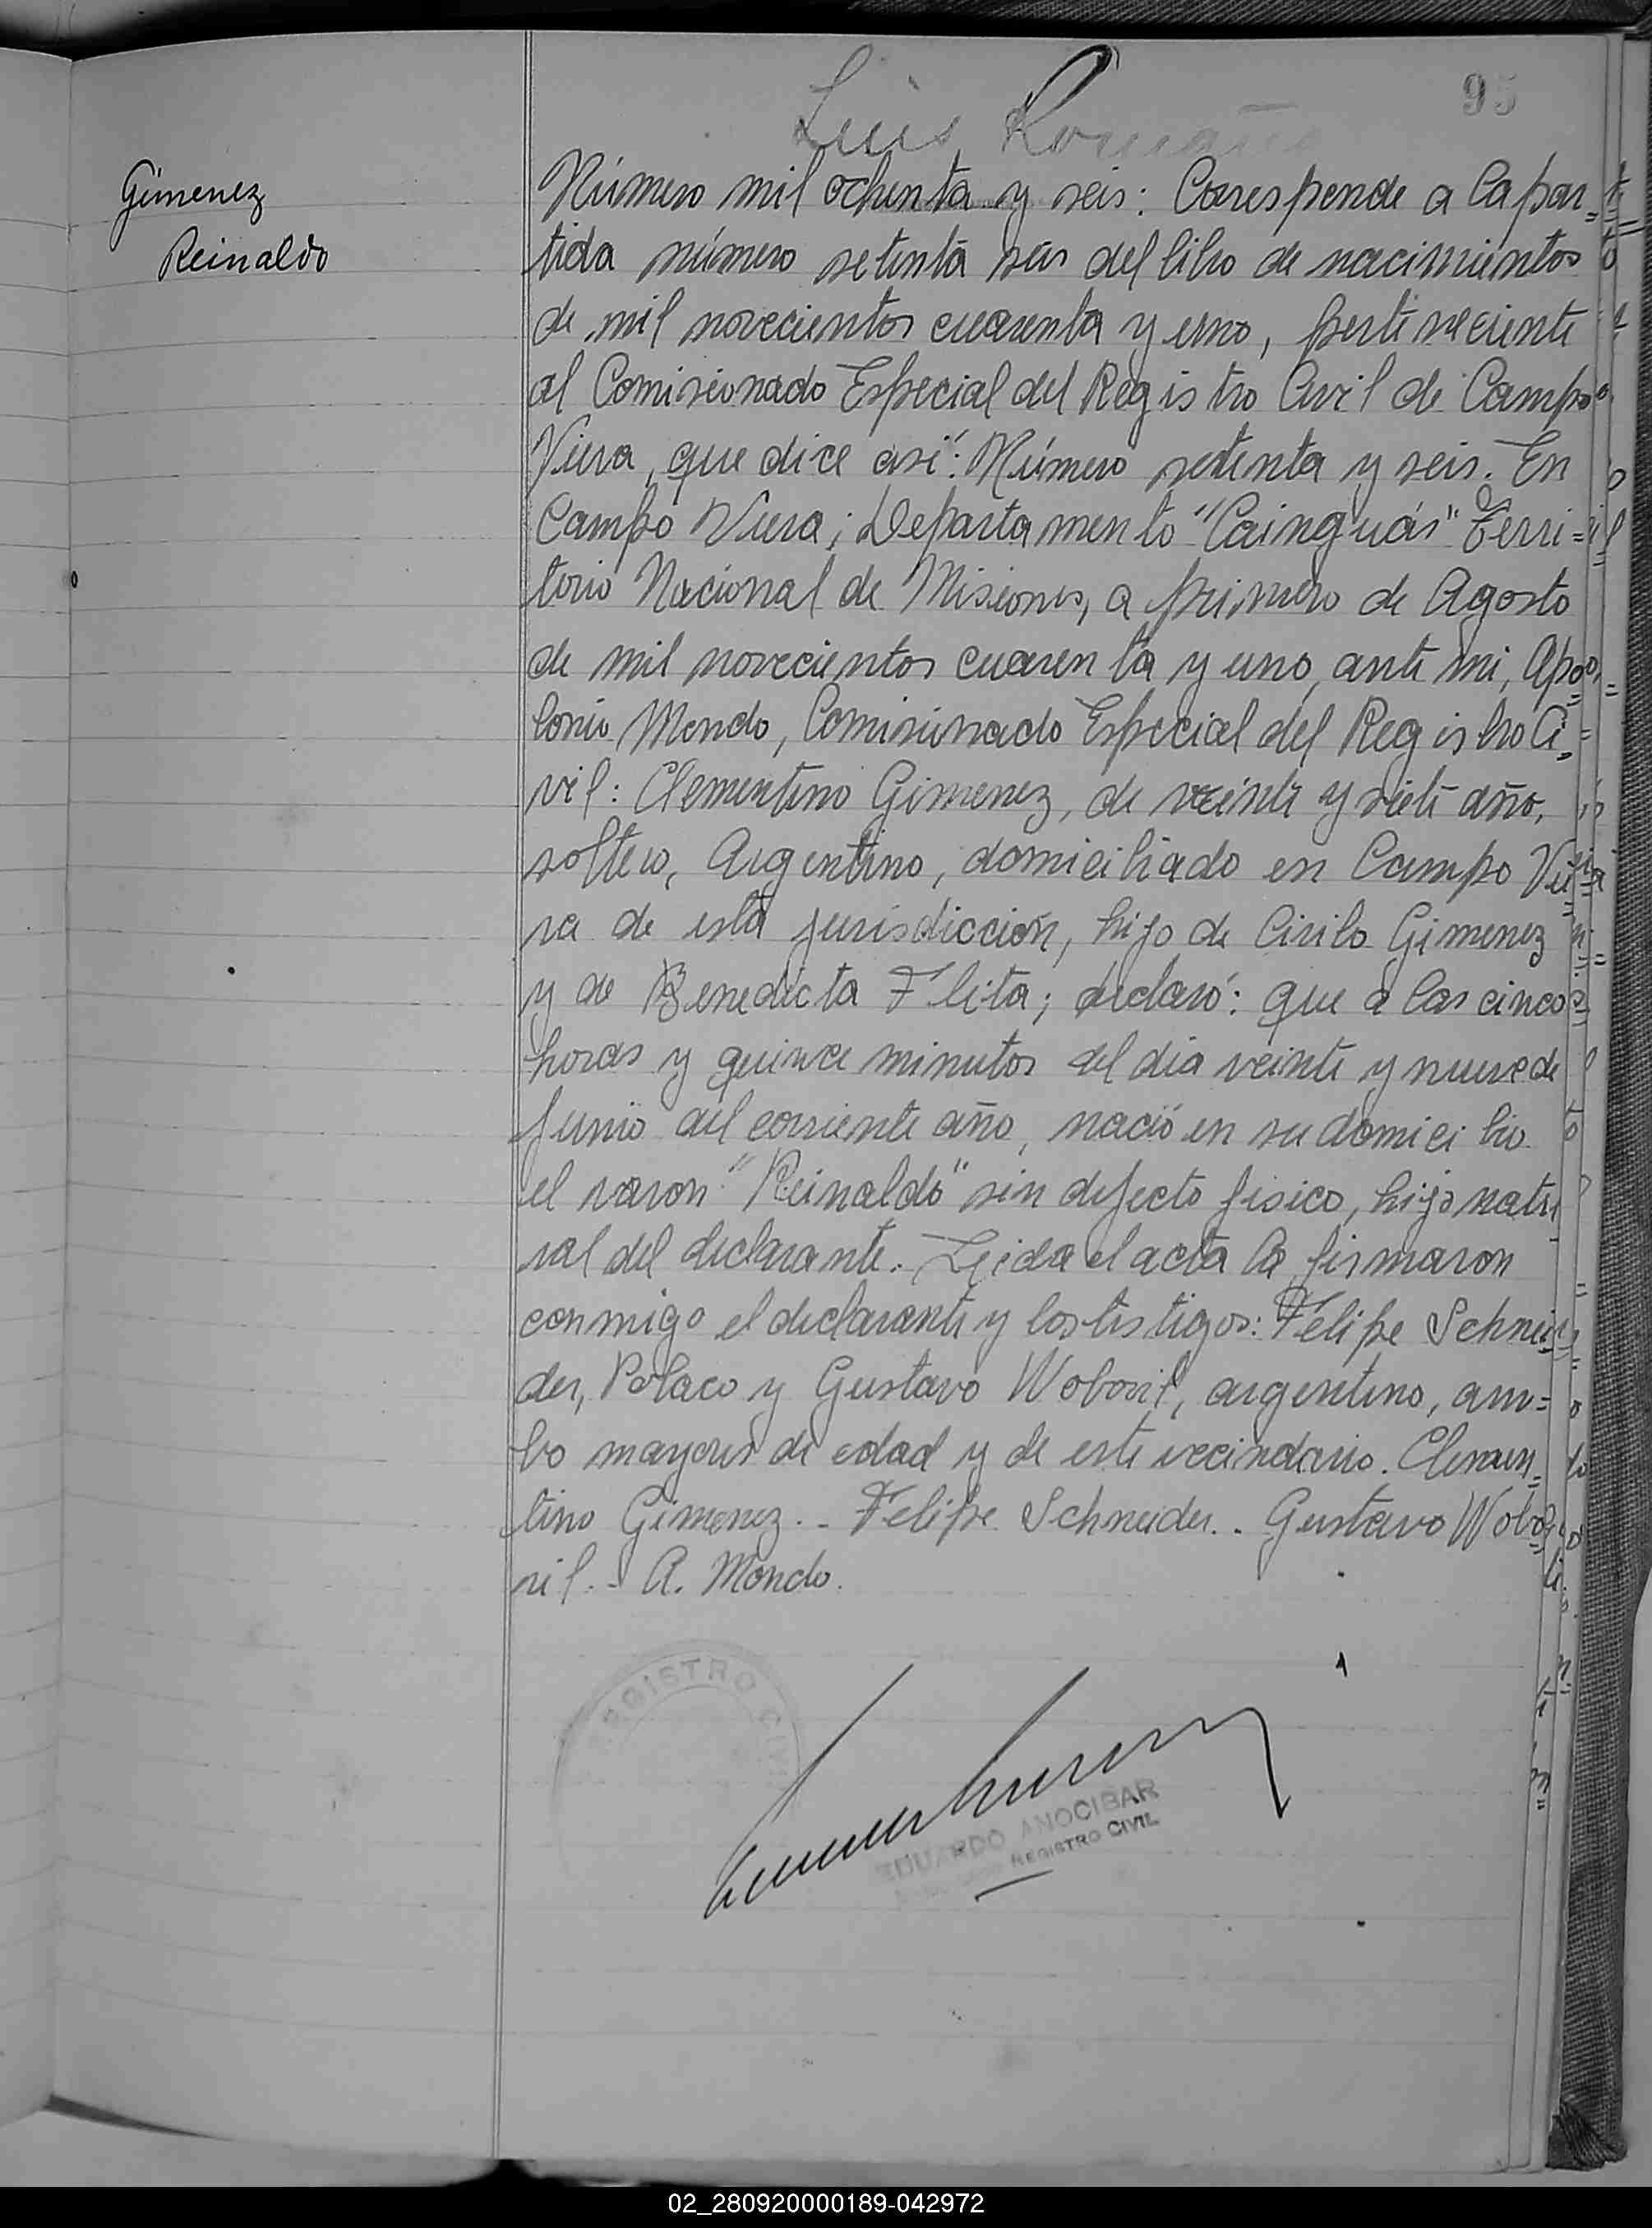 95
Luis Romaña
Gimenez
Reinaldo
Número mil ochenta y seis: Corresponde a la par=
tida número setenta seis del libro de nacimientos
de mil novecientos cuarenta y uno, perteneciente
al Comisionado Especial del Registro Civil de Campo
Viera, que dice así: Número setenta y seis. En
Campo Viera; Departamento "Cainguás" Terri=
torio Nacional de Misiones, a primero de Agosto
de mil novecientos cuarenta y uno, ante mi, Apo=
lonio Mondo, Comisionado Especial del Registro Ci=
vil: Clementino Gimenez, de veinte y siete año,
soltero, Argentino, domiciliado en Campo Vie=
ra de esta jurisdicción, hijo de Cirilo Gimenez
y de Benedicta Flita; declaró: que a las cinco
horas y quince minutos del dia veinte y nueve de
Junio del corriente año, nació en su domicilio
el varon "Reinaldo" sin defecto fisico, hijo natu
ral del declarante. Leida el acta la firmaron
conmigo el declarante y los testigos: Felipe Schnei=
der, Polaco y Gustavo Woboril, argentino, am=
bo mayores de edad y de este vecindario. Clemen=
tino Gimenez.- Felipe Schneider.- Gustavo Wobo=
ril.- A. Mondo.
REGISTRO CIVIL
EDUARDO ANOCIBAR
REGISTRO CIVIL
02_280920000189-042972